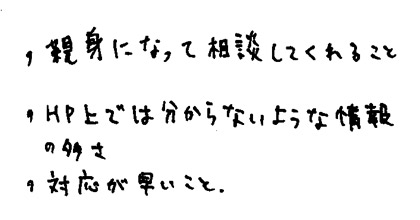 ・親身になって相談してくれること
・HP上では分からないような情報
の多さ
・対応が早いこと.